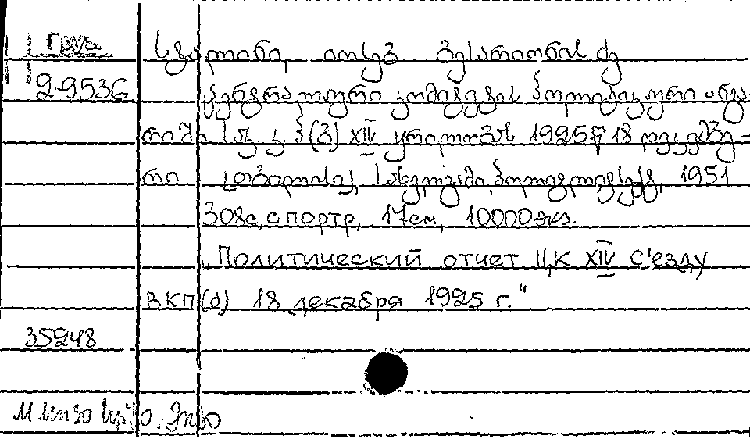 Груз
29536
სტალინი, იოსებ ბესარიონის ძე
ცენტრალური კომიტეტის პოლიტიკური ანგა-
რიში საკ. კ. პ(ბ) XIV ყრილობას 1925წ 18 დეკემბე-
რი თბილისი, სახელგამი, პოლიტლიტსექტ, 1951
308с, с портр, 17см, 10000экз.
„Политический отчет ЦК XIV с'езду
ВКП(б) 18 декабря 1925 г."
35248